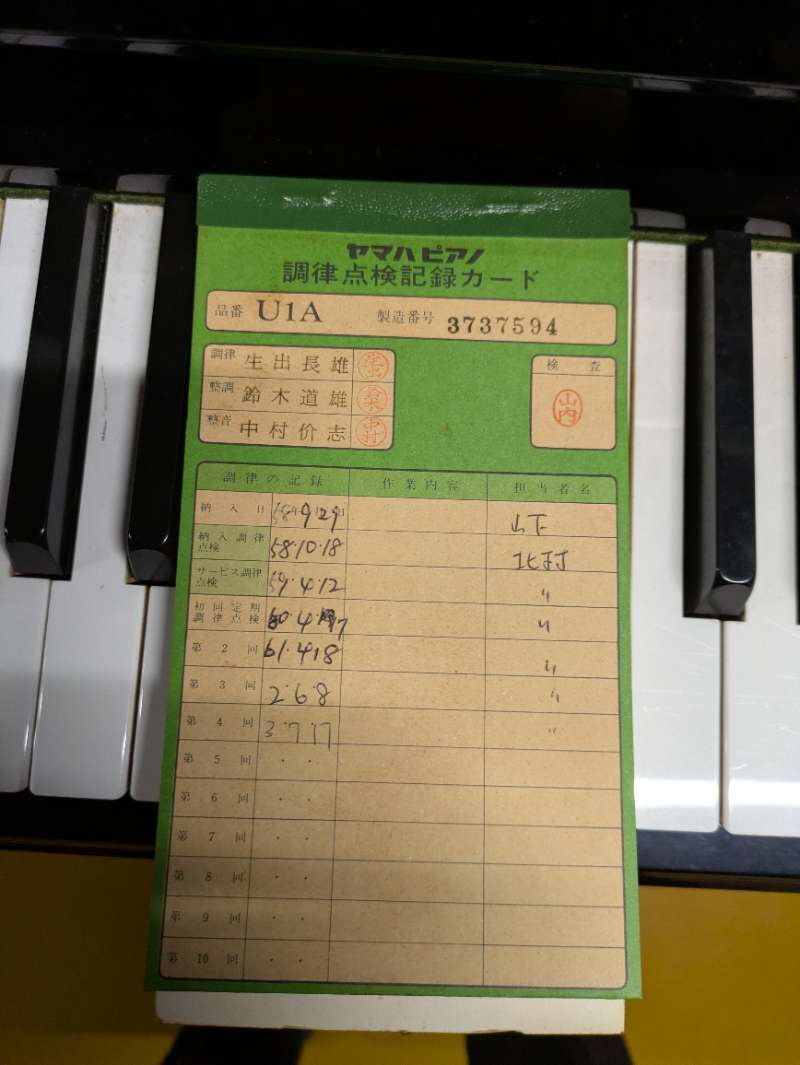 ヤマハピアノ
調律点検記録カード
品番 U1A 製造番号 3737594
調律 生出長雄
整調 鈴木道雄
整音 中村价志 中村
検査
山内
調律の記録 作業内容 担当者名
納入日 58 9 29 山下
納入調律点検 58.10.18 北村
サービス調律点検 59.4.12 〃
初回定期調律点検 60.4. 〃
第2回 61.4.18 〃
第3回 2.6.8 〃
第4回 3.7.17 〃
第5回 . .
第6回 . .
第7回 . .
第8回 . .
第9回 . .
第10回 . .